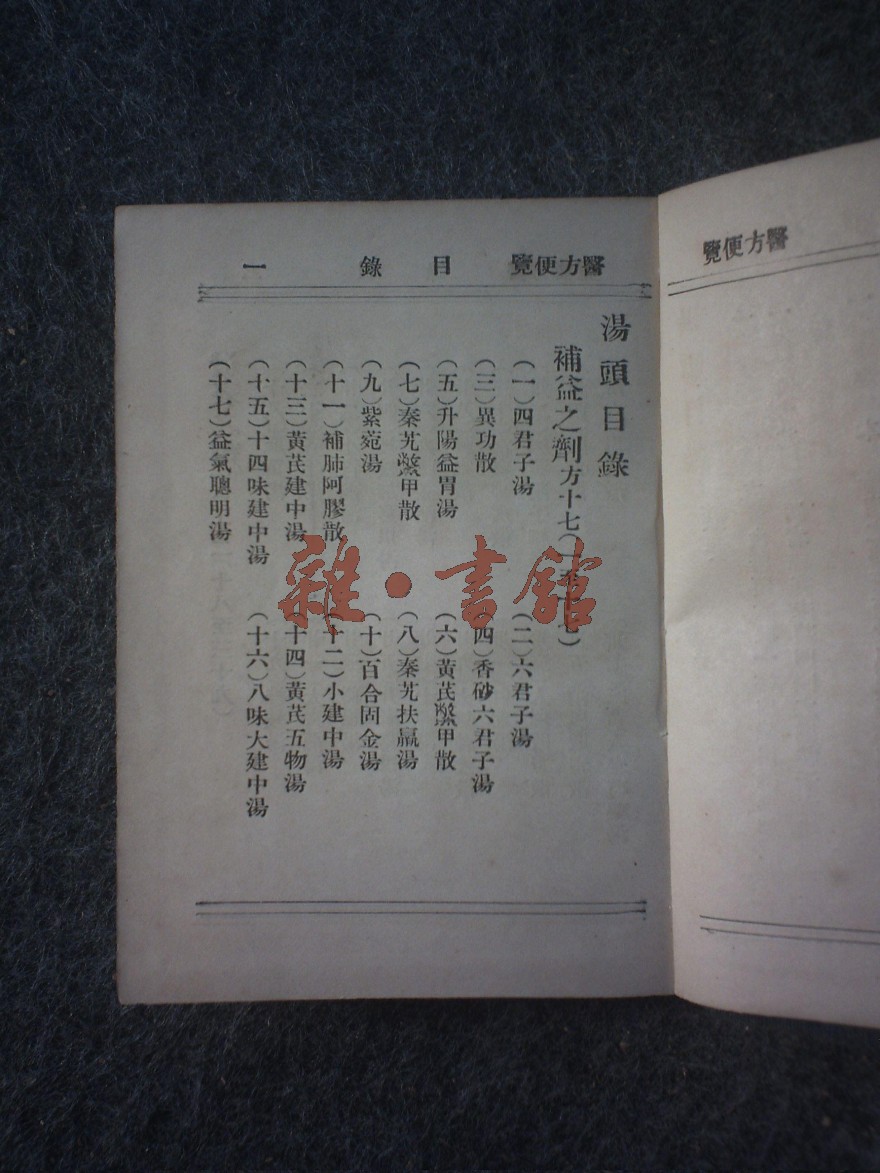 醫方便覽
醫方便覽 目 錄 一
湯頭目錄
補益之劑方十七(一至十七)
(一)四君子湯 (二)六君子湯
(三)異功散 (四)香砂六君子湯
(五)升陽益胃湯 (六)黃芪鱉甲散
(七)秦艽鱉甲散 (八)秦艽扶羸湯
(九)紫菀湯 (十)百合固金湯
(十一)補肺阿膠散 (十二)小建中湯
(十三)黃芪建中湯 (十四)黃芪五物湯
(十五)十四味建中湯 (十六)八味大建中湯
(十七)益氣聰明湯
雜·書館